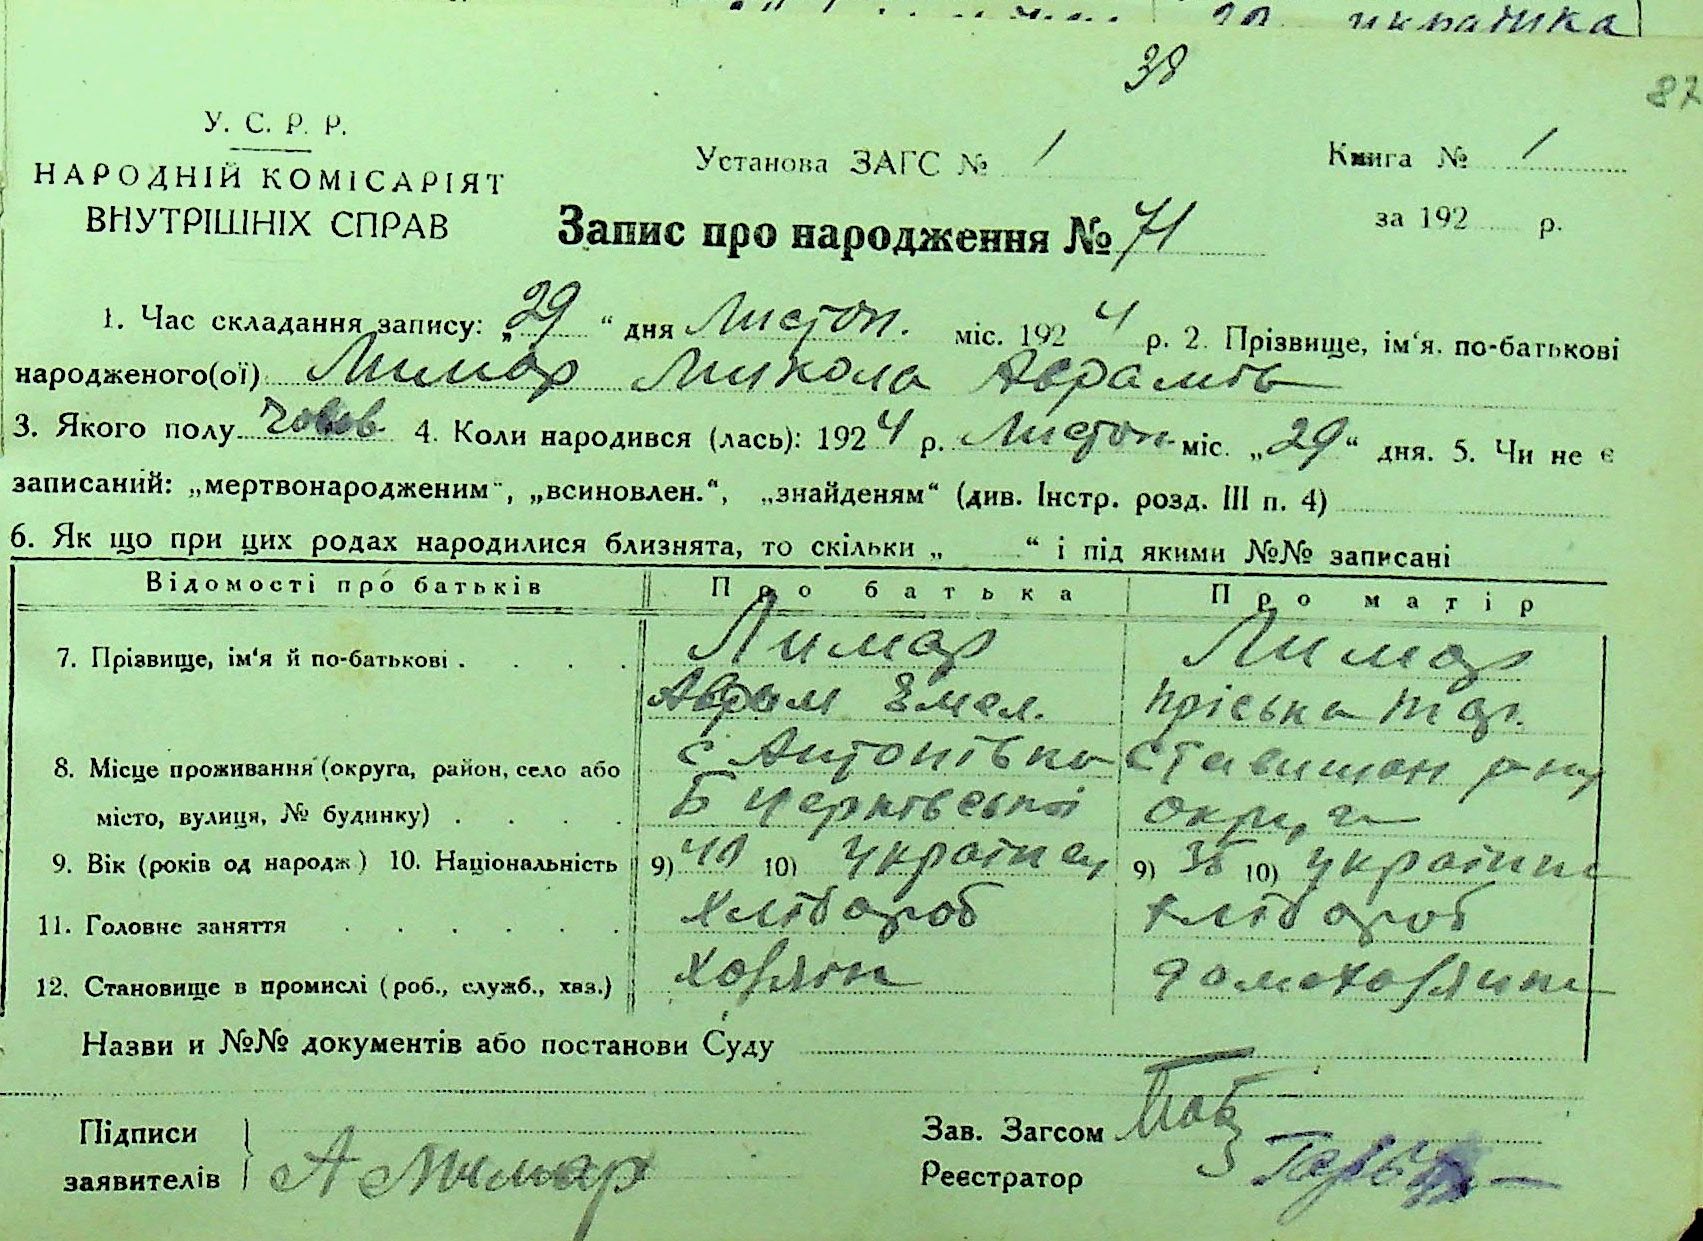 38
87
У. С. Р. Р.
НАРОДНІЙ КОМІСАРІЯТ
ВНУТРІШНІХ СПРАВ
Установа ЗАГС № 1
Книга № 1
за 192 р.
Запис про народження № 71
1. Час складання запису: „29“ дня Листоп. міс. 1924 р. 2. Прізвище, ім'я, по-батькові
народженого(ої) Лимар Микола Аврамів
3. Якого полу чолов. 4. Коли народився (лась): 1924 р. Листоп. міс. „29“ дня. 5. Чи не є
записаний: „мертвонародженим“, „всиновлен.“, „знайденям“ (див. Інстр. розд. III п. 4)
6. Як що при цих родах народилися близнята, то скільки „ “ і під якими №№ записані
Відомості про батьків Про батька Про матір
7. Прізвище, ім'я й по-батькові . . . . Лимар Лимар
Аврам Емел. Пріська
8. Місце проживання (округа, район, село або с Антонівка Ставищан р-ну
місто, вулиця, № будинку) . . . . Б Черківської округи
9. Вік (років од народж) 10. Національність 9) 40 10) Українец 9) 35 10) Українка
11. Головне заняття . . . . . . хлібороб хлібороб
12. Становище в промислі (роб., служб., хвз.) хозяін домохозяика
Назви и №№ документів або постанови Суду
Підписи
заявителів
А Лимар
Зав. Загсом
Реєстратор